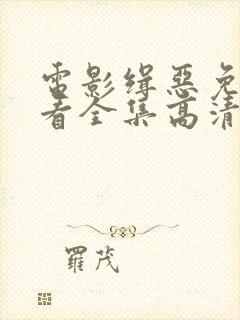 電影缉惡免
看全集高清
羅茂